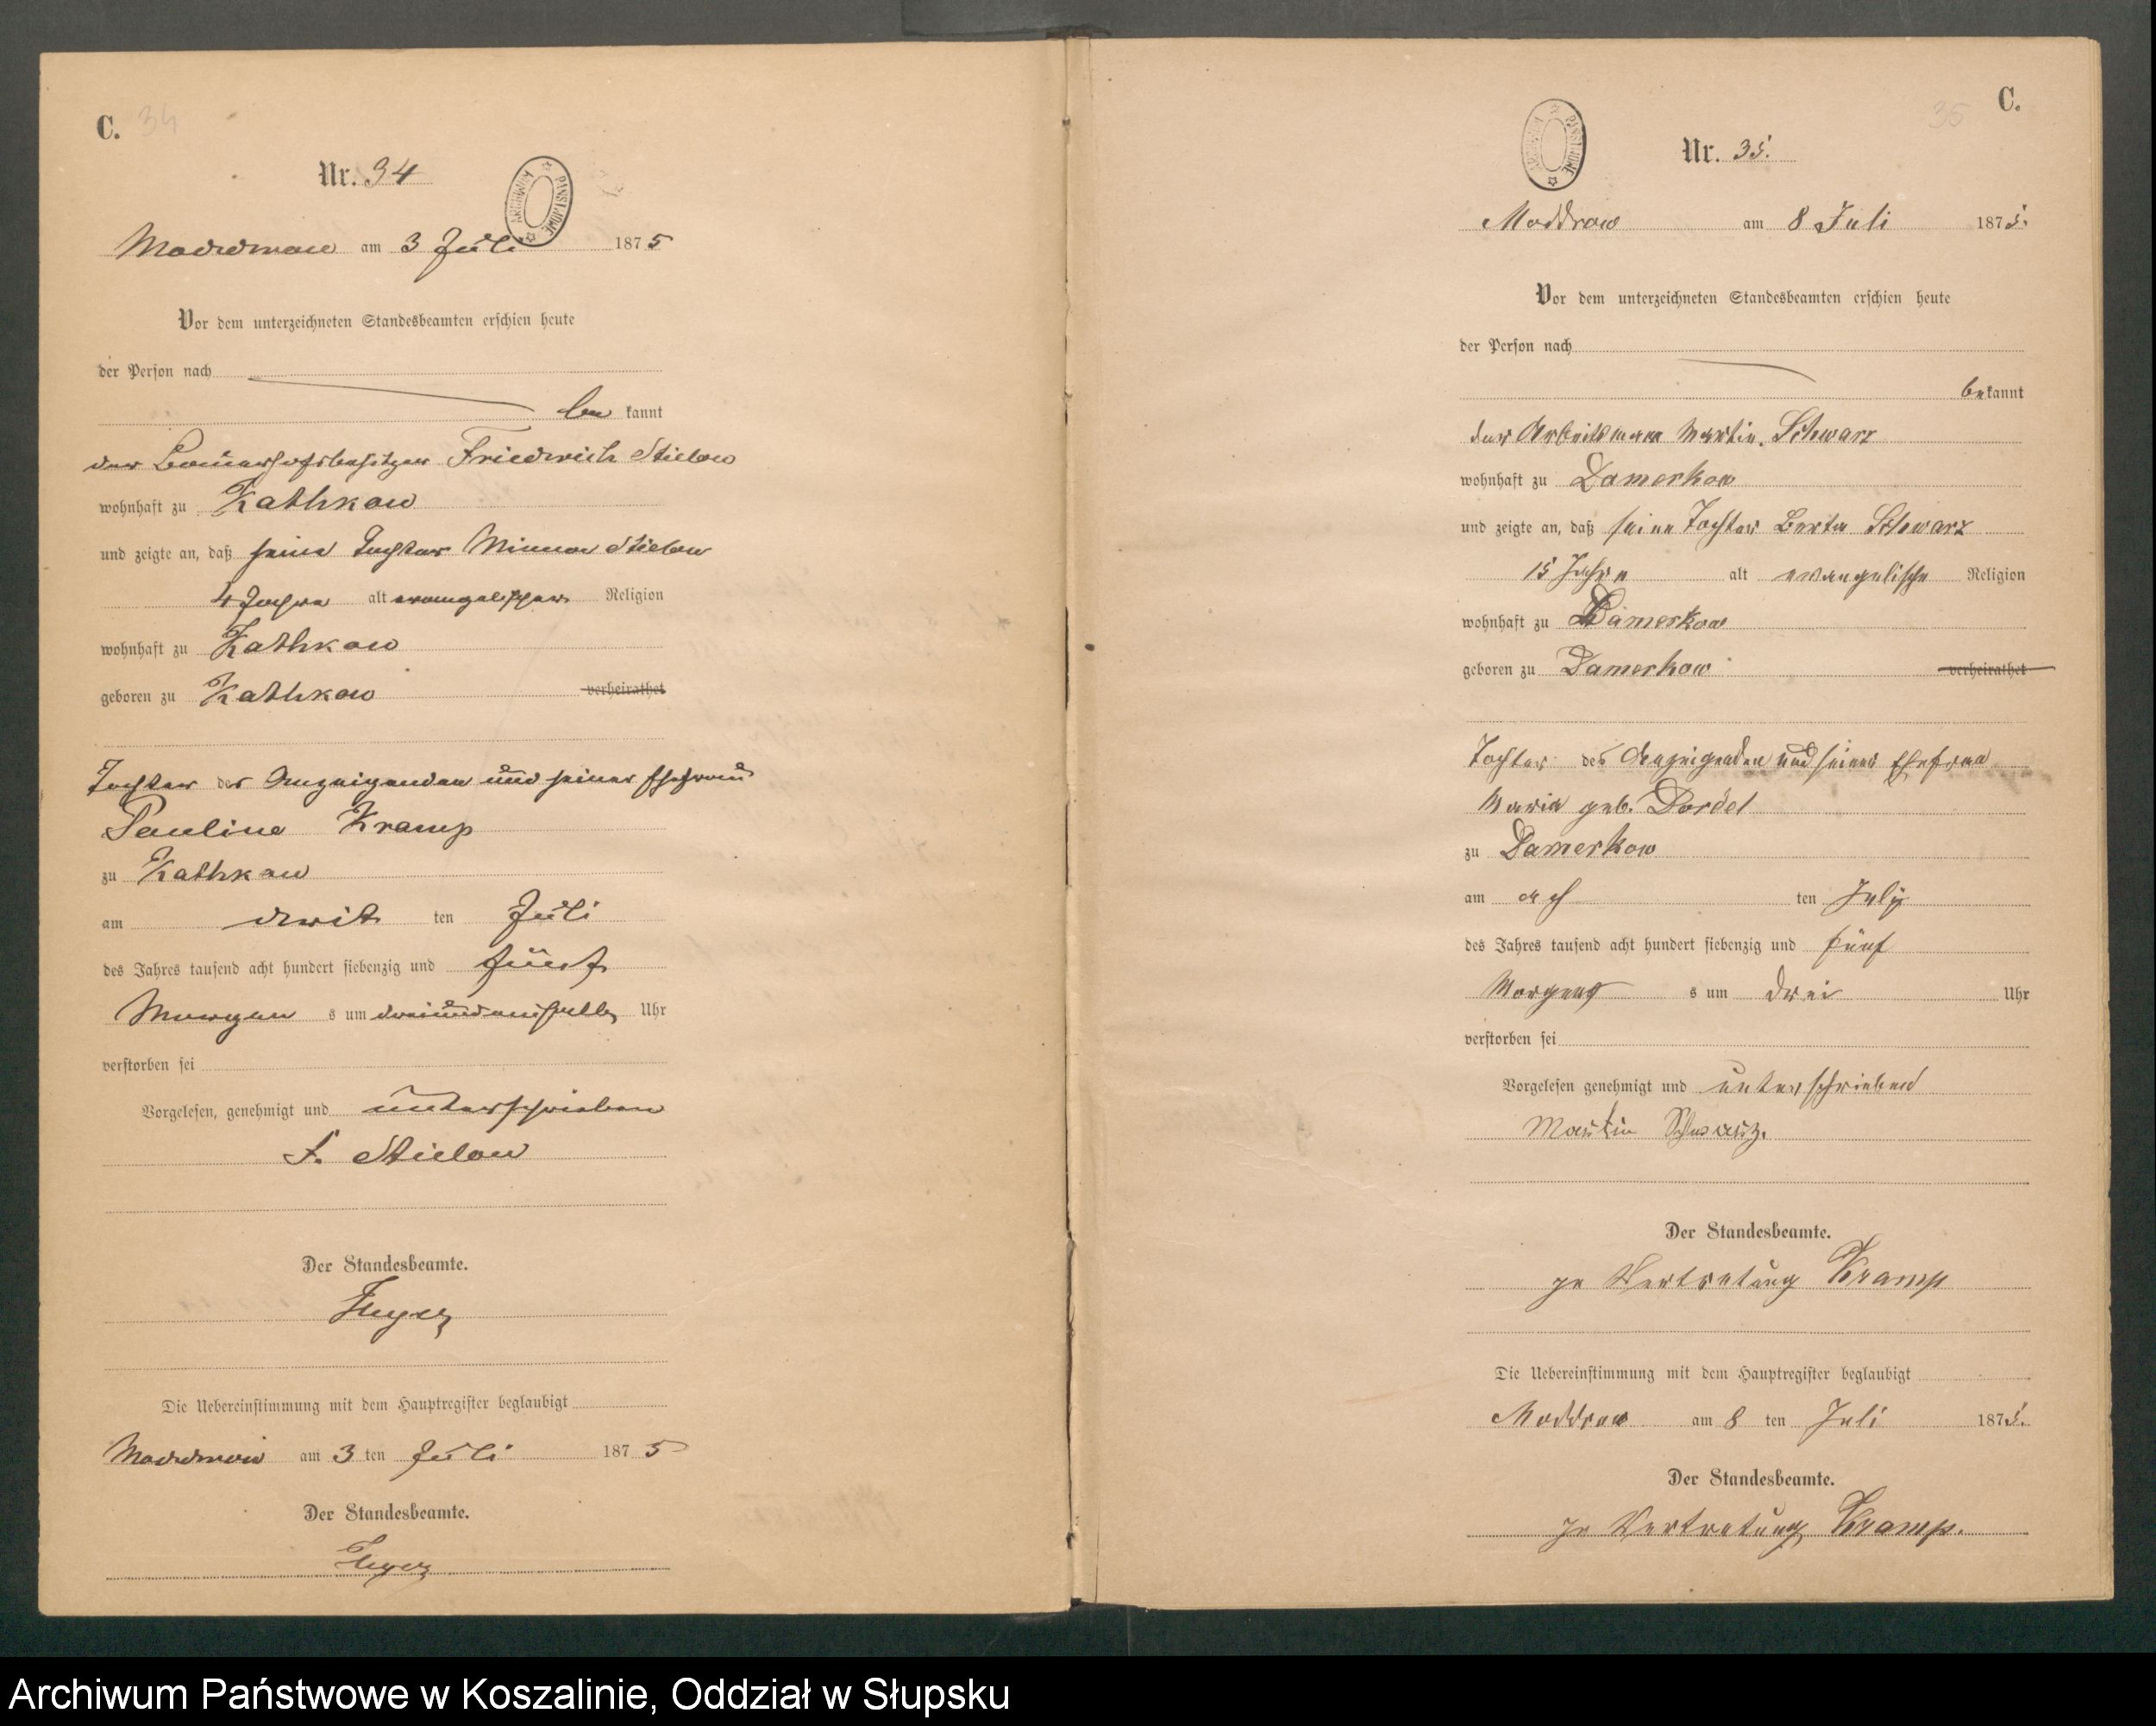 C. 34
Nr. 34
ARCHIWUM PAŃSTWOWE
Moddrow am 3 Juli 1875
Vor dem unterzeichneten Standesbeamten erschien heute
der Person nach
be kannt
der Bauerhofsbesitzer Friedrich Stielow
wohnhaft zu Kathkow
und zeigte an, daß seine Tochter Minna Stielow
4 Jahre alt evangelischer Religion
wohnhaft zu Kathkow
geboren zu Kathkow verheirathet
Tochter des Anzeigenden und seiner Ehefrau
Pauline Kramp
zu Kathkow
am drit ten Juli
des Jahres tausend acht hundert siebenzig und fünf
Morgen s um dreiundeinhalb Uhr
verstorben sei
Vorgelesen, genehmigt und unterschrieben
F. Stielow
Der Standesbeamte.
Die Uebereinstimmung mit dem Hauptregister beglaubigt
Moddrow am 3 ten Juli 1875
Der Standesbeamte.
C.
35
Nr. 35.
ARCHIWUM PAŃSTWOWE
Moddrow am 8 Juli 1875.
Vor dem unterzeichneten Standesbeamten erschien heute
der Person nach
bekannt
der Arbeitsmann Martin Schwarz
wohnhaft zu Damerkow
und zeigte an, daß seine Tochter Berta Schwarz
15 Jahre alt evangelische Religion
wohnhaft zu Damerkow
geboren zu Damerkow verheirathet
Tochter des Anzeigenden und seiner Ehefrau
Maria geb. Dordel
zu Damerkow
am ach ten July
des Jahres tausend acht hundert siebenzig und fünf
Morgens s um drei Uhr
verstorben sei
Vorgelesen genehmigt und unterschrieben
Martin Schwarz.
Der Standesbeamte.
In Vertretung Kramp
Die Uebereinstimmung mit dem Hauptregister beglaubigt
Moddrow am 8 ten Juli 1875.
Der Standesbeamte.
In Vertretung Kramp.
Archiwum Państwowe w Koszalinie, Oddział w Słupsku